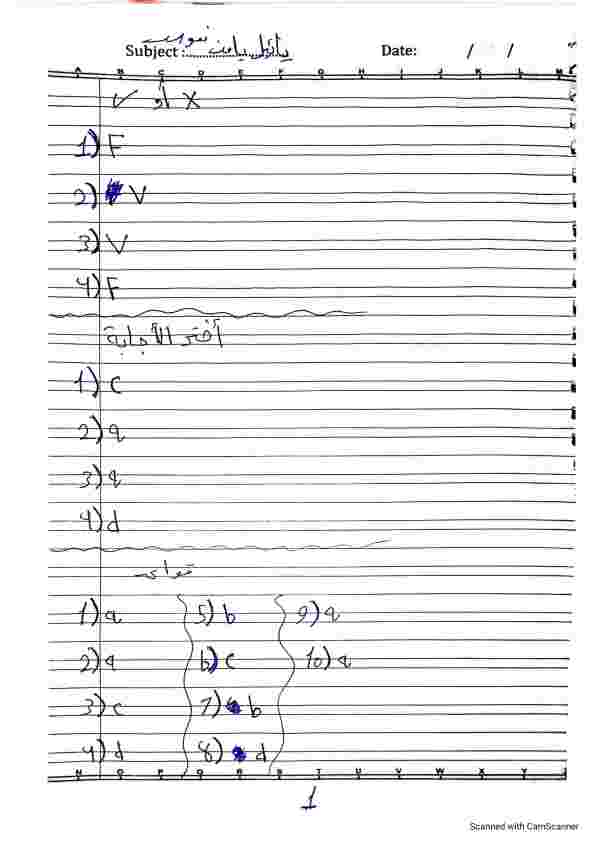 Subject : Date: / /
A B C D E F G H I J K L M
✓ أو X
1) F
2) V
3) V
4) F
أختر الأجابة
1) c
2) a
3) a
4) d
قواعد
1) a 5) b 9) a
2) a 6) c 10) a
3) c 7) b
4) d 8) d
N O P Q R S T U V W X Y Z
1
Scanned with CamScanner